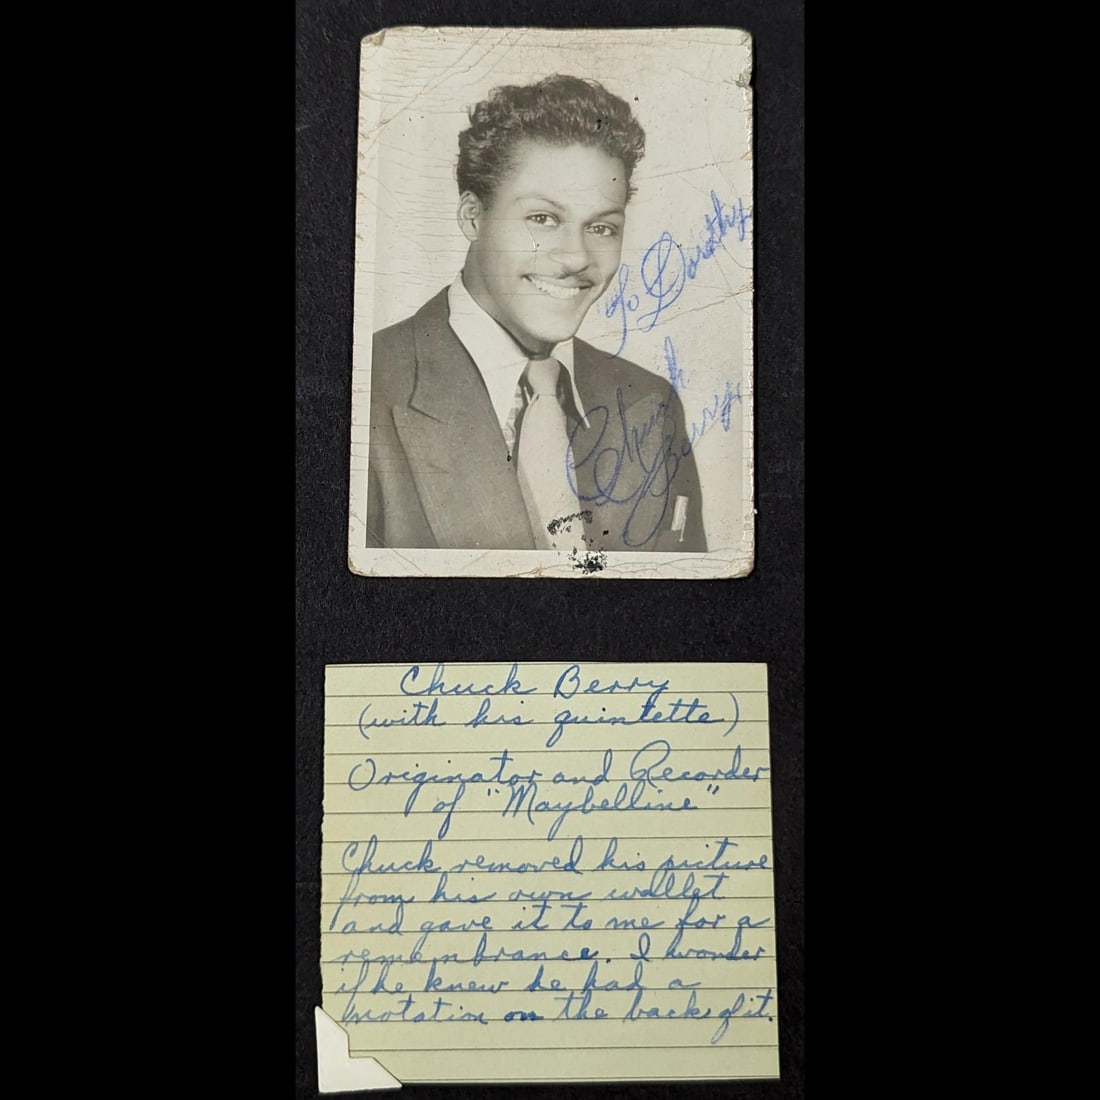 To Dorothy
Chuck
Berry
Chuck Berry
(with his quintette)
Originator and Recorder
of "Maybelline"
Chuck removed his picture
from his own wallet
and gave it to me for a
remembrance. I wonder
if he knew he had a
notation on the back of it.